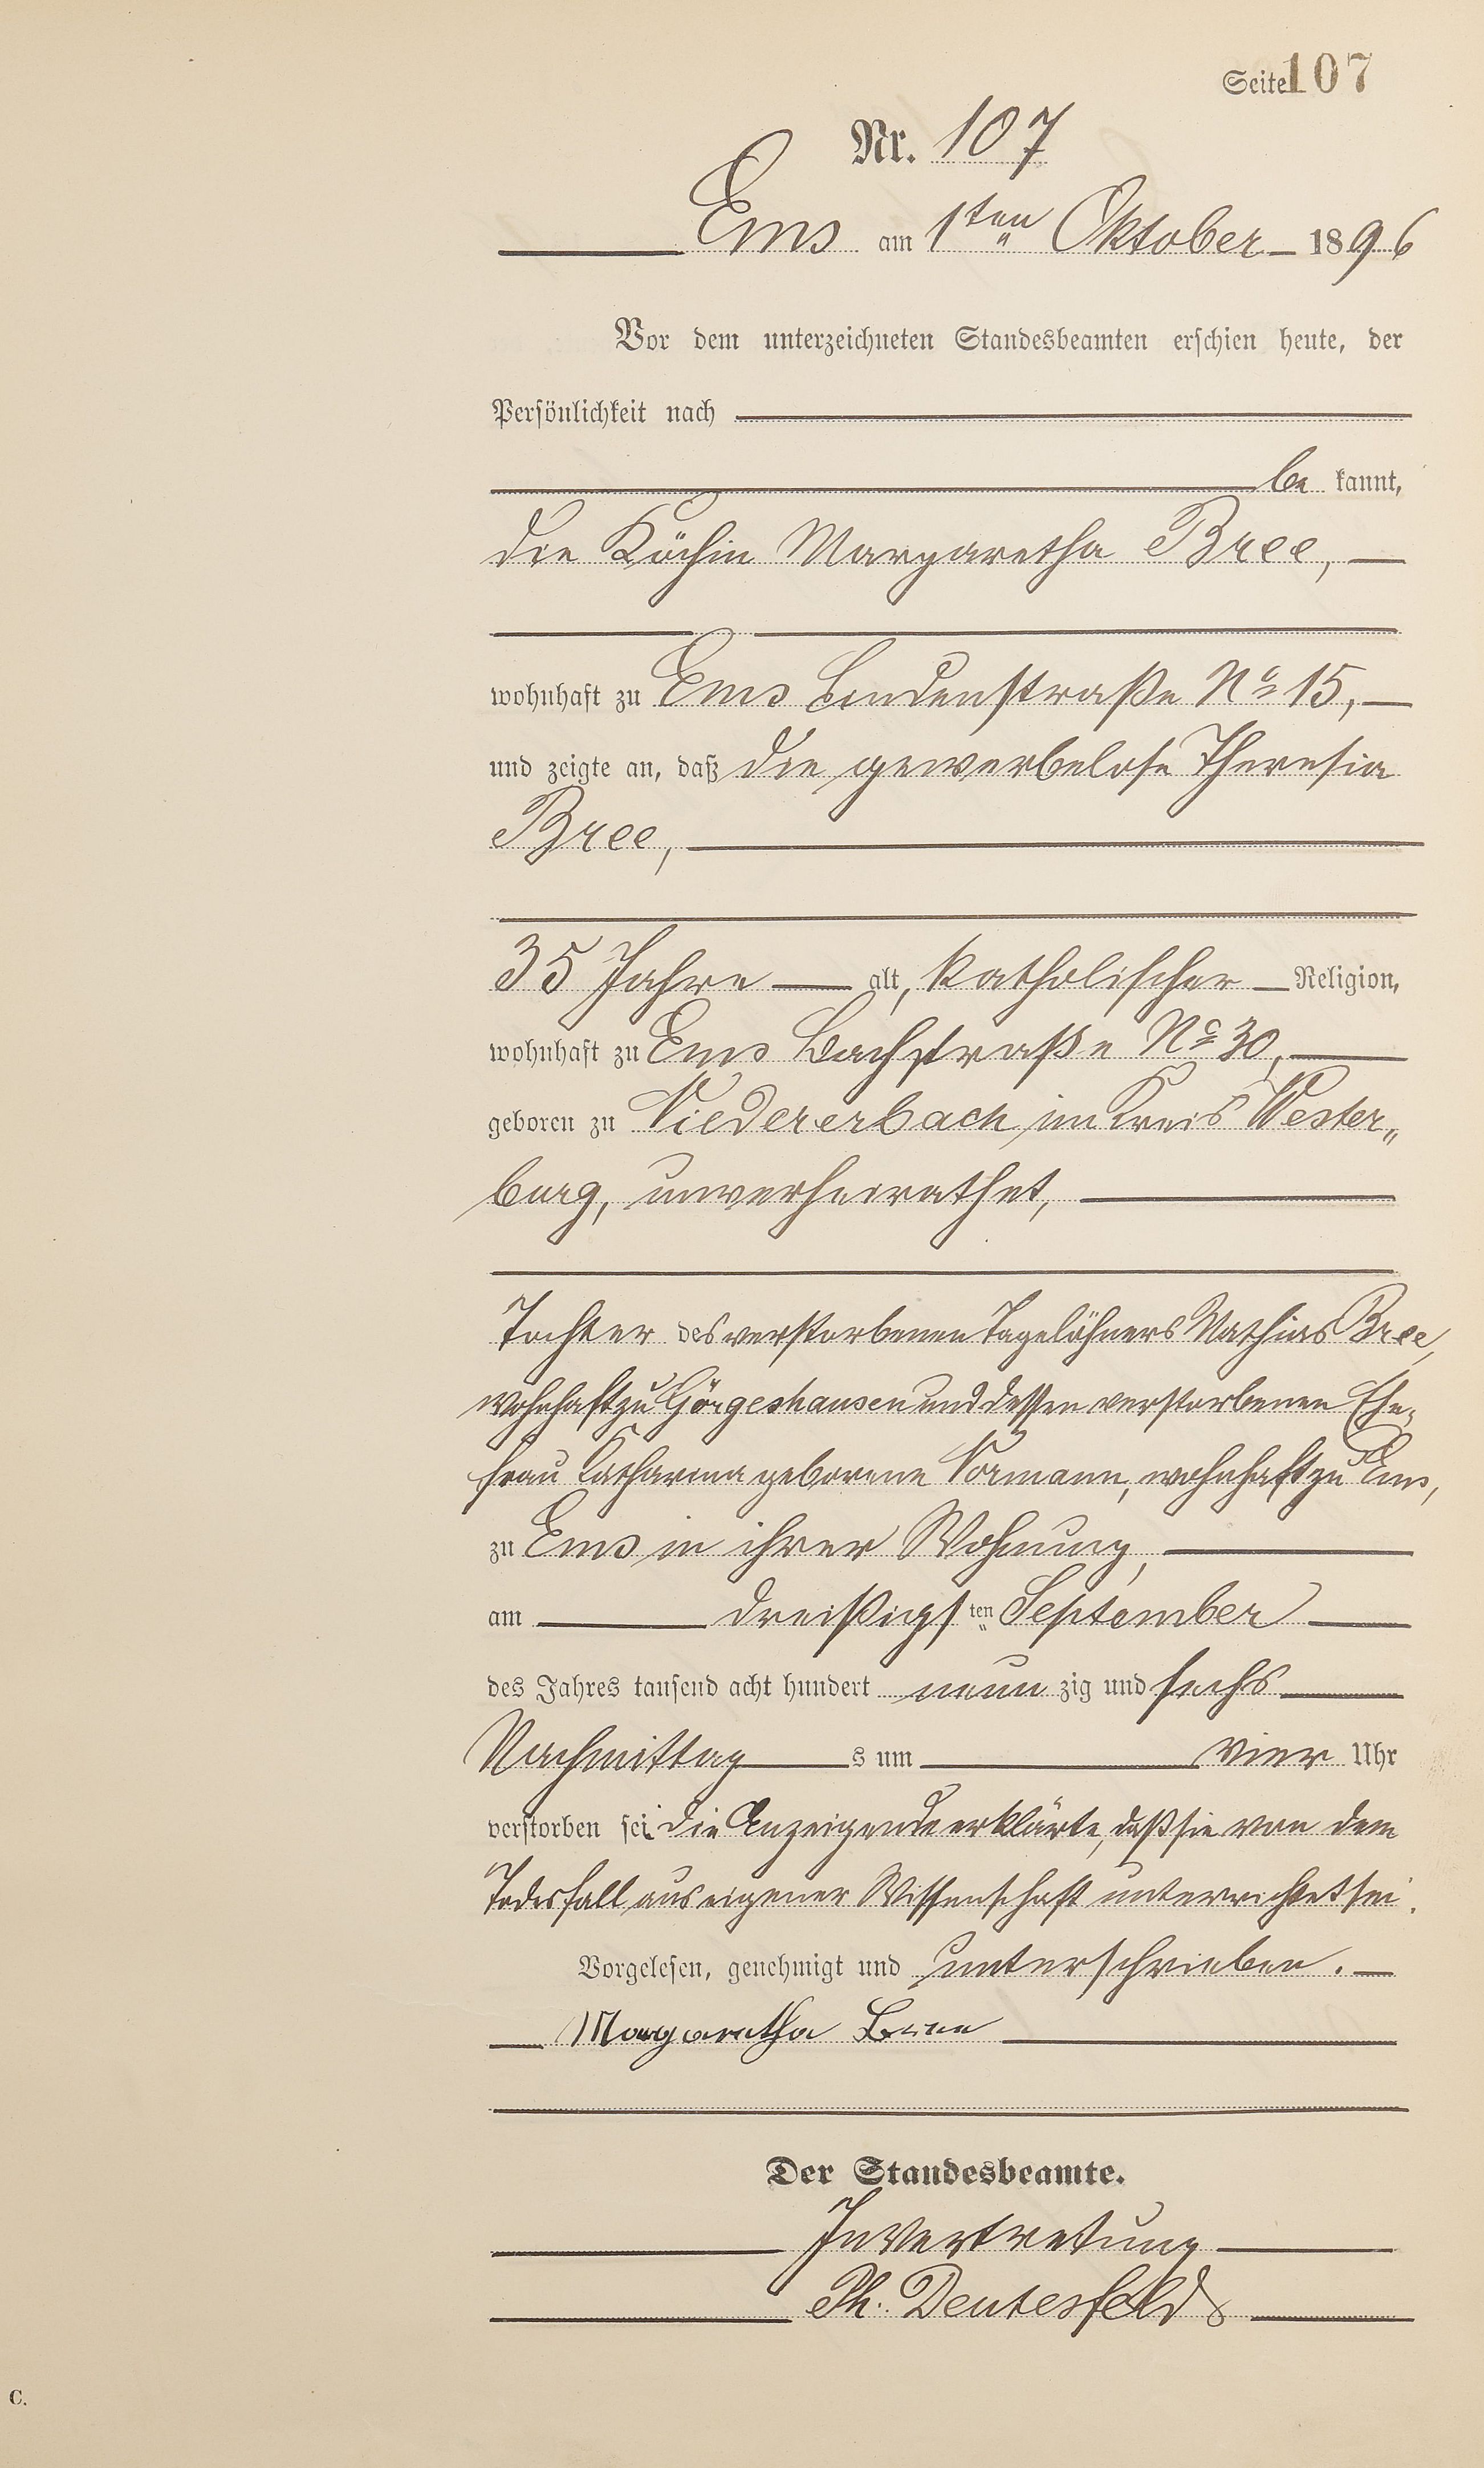 Seite 107
Nr. 107
Ems am 1ten Oktober 1896
Vor dem unterzeichneten Standesbeamten erschien heute, der
Persönlichkeit nach
be kannt,
die Köchin Margaretha Bree,
wohnhaft zu Ems Lindenstraße No 15,
und zeigte an, daß die gewerbelose Theresia
Bree,
35 Jahre alt, katholischer Religion,
wohnhaft zu Ems Bachstraße No 30,
geboren zu Niedererbach im Kreis Wester„
burg, unverheirathet,
Tochter des verstorbenen Tagelöhners Mathias Bree,
wohnhaft zu Görgeshausen und dessen verstorbenen Ehe„
frau Katharina geborene Normann, wohnhaft zu Ems,
zu Ems in ihrer Wohnung,
am dreißigsten September
des Jahres tausend acht hundert neun zig und sechs
Nachmittags um vier Uhr
verstorben sei. Die Anzeigende erklärte, daß sie von dem
Todesfall aus eigener Wissenschaft unterrichtet sei.
Vorgelesen, genehmigt und unterschrieben.
Margaretha Bree
Der Standesbeamte.
In Vertretung
Ph. Deutesfeld
C.